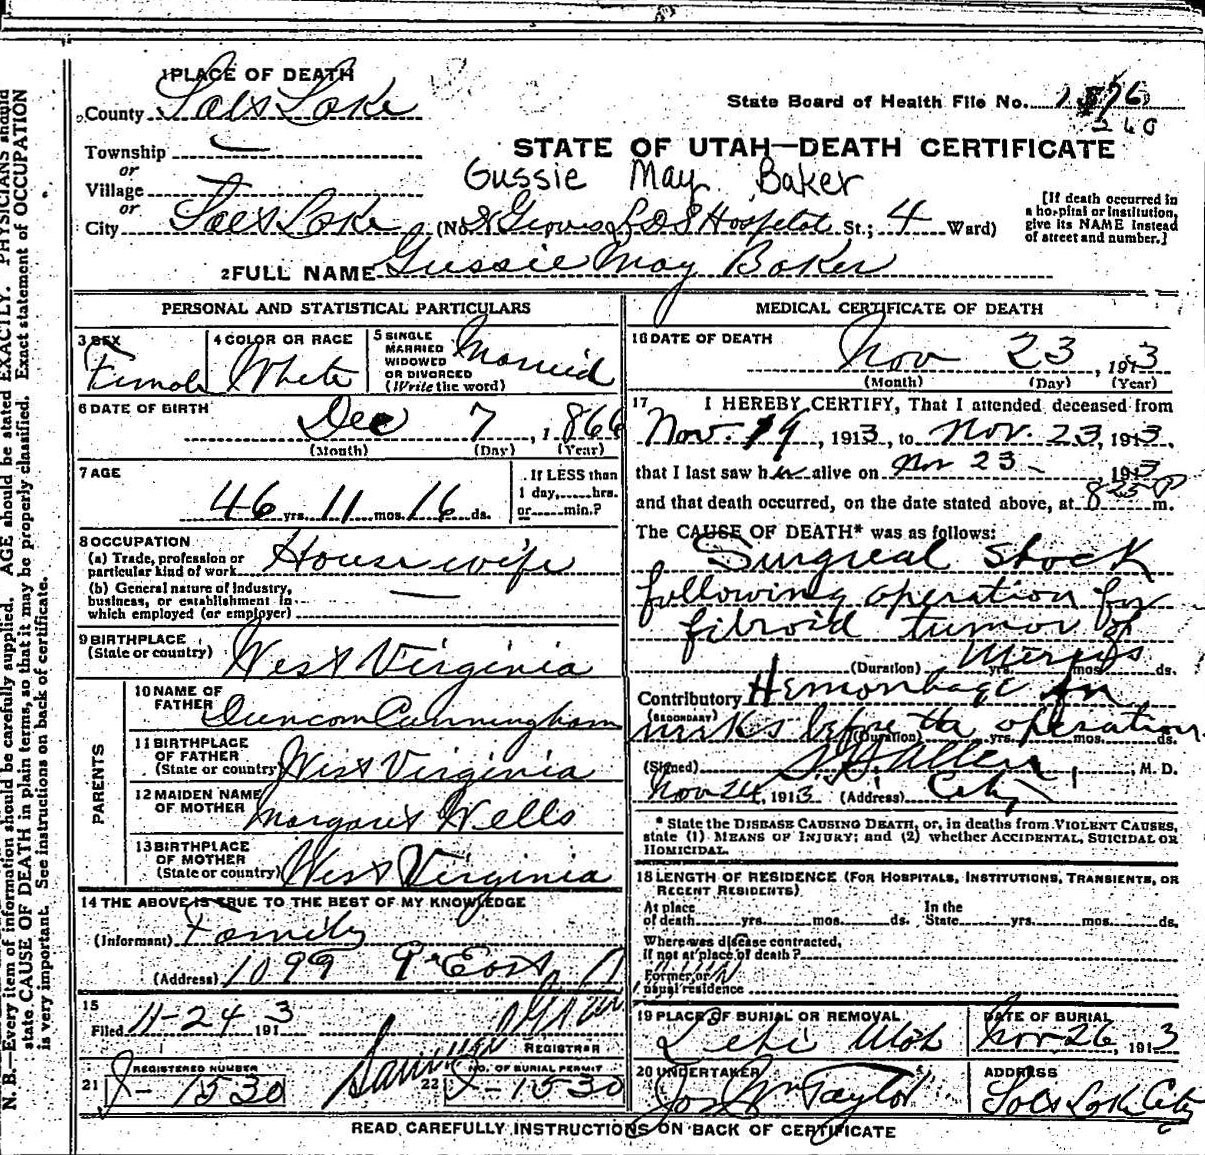 1 PLACE OF DEATH
County Salt Lake
State Board of Health File No.
Township
or
Village
or
City Salt Lake (No. Groves L D S Hospital St.; 4 Ward)
STATE OF UTAH—DEATH CERTIFICATE
Gussie May Baker
[If death occurred in
a hospital or institution,
give its NAME instead
of street and number.]
2 FULL NAME Gussie May Baker
PERSONAL AND STATISTICAL PARTICULARS
3 SEX
Female
4 COLOR OR RACE
White
5 SINGLE
MARRIED
WIDOWED
OR DIVORCED
(Write the word)
Married
6 DATE OF BIRTH
Dec 7, 1866
(Month) (Day) (Year)
7 AGE
46 yrs. 11 mos. 16 ds.
If LESS than
1 day,......hrs.
or......min.?
8 OCCUPATION
(a) Trade, profession or
particular kind of work Housewife
(b) General nature of industry,
business, or establishment in
which employed (or employer) —
9 BIRTHPLACE
(State or country) West Virginia
PARENTS
10 NAME OF
FATHER Duncan Cunningham
11 BIRTHPLACE
OF FATHER
(State or country) West Virginia
12 MAIDEN NAME
OF MOTHER Margaret Wells
13 BIRTHPLACE
OF MOTHER
(State or country) West Virginia
14 THE ABOVE IS TRUE TO THE BEST OF MY KNOWLEDGE
(Informant) Family
(Address) 1099 9th East
15
Filed 11-24 1913
REGISTRAR
21 REGISTERED NUMBER
J-1530
22 NO. OF BURIAL PERMIT
J-1530
MEDICAL CERTIFICATE OF DEATH
16 DATE OF DEATH
Nov 23, 1913
(Month) (Day) (Year)
17 I HEREBY CERTIFY, That I attended deceased from
Nov. 19, 1913, to Nov. 23, 1913,
that I last saw her alive on Nov 23 1913
and that death occurred, on the date stated above, at 8 25 P m.
The CAUSE OF DEATH* was as follows:
Surgical Shock
following operation for
fibroid tumor of
Uterus
(Duration) yrs. mos. ds.
Contributory Hemorrhage for
(SECONDARY) weeks before the operation
(Duration) yrs. mos. ds.
(Signed) Allen, M. D.
Nov 24, 1913 (Address) City
* State the DISEASE CAUSING DEATH, or, in deaths from VIOLENT CAUSES,
state (1) MEANS OF INJURY; and (2) whether ACCIDENTAL, SUICIDAL OR
HOMICIDAL.
18 LENGTH OF RESIDENCE (FOR HOSPITALS, INSTITUTIONS, TRANSIENTS, OR
RECENT RESIDENTS)
At place
of death yrs. mos. ds.
In the
State yrs. mos. ds.
Where was disease contracted,
If not at place of death?
Former or
usual residence
19 PLACE OF BURIAL OR REMOVAL
Lehi Utah
DATE OF BURIAL
Nov 26, 1913
20 UNDERTAKER
Jos Wm Taylor
ADDRESS
Salt Lake City
READ CAREFULLY INSTRUCTIONS ON BACK OF CERTIFICATE
N. B.—Every item of information should be carefully supplied. AGE should be stated EXACTLY. PHYSICIANS should
state CAUSE OF DEATH in plain terms, so that it may be properly classified. Exact statement of OCCUPATION
is very important. See instructions on back of certificate.